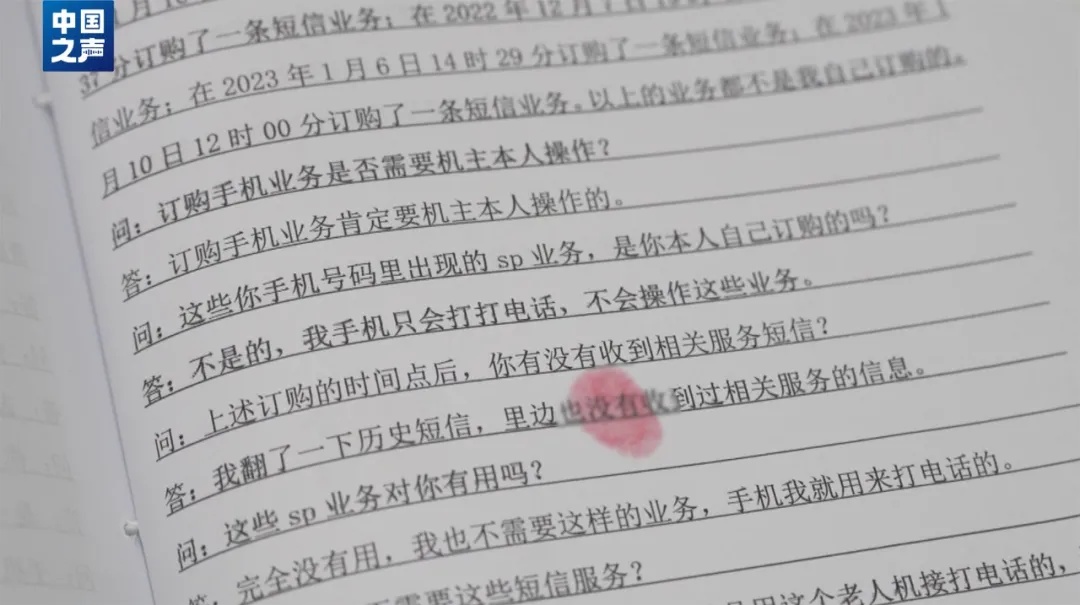 中国
之声
月10
37分订购了一条短信业务；在2022年12月7日
信业务；在2023年1月6日14时29分订购了一条短信业务；在2023年1
月10日12时00分订购了一条短信业务。以上的业务都不是我自己订购的。
问：订购手机业务是否需要机主本人操作？
答：订购手机业务肯定要机主本人操作的。
问：这些你手机号码里出现的sp业务，是你本人自己订购的吗？
答：不是的，我手机只会打打电话，不会操作这些业务。
问：上述订购的时间点后，你有没有收到相关服务短信？
答：我翻了一下历史短信，里边也没有收到过相关服务的信息。
问：这些sp业务对你有用吗？
答：完全没有用，我也不需要这样的业务，手机我就用来打电话的。
需要这些短信服务？
用这个老人机接打电话的，